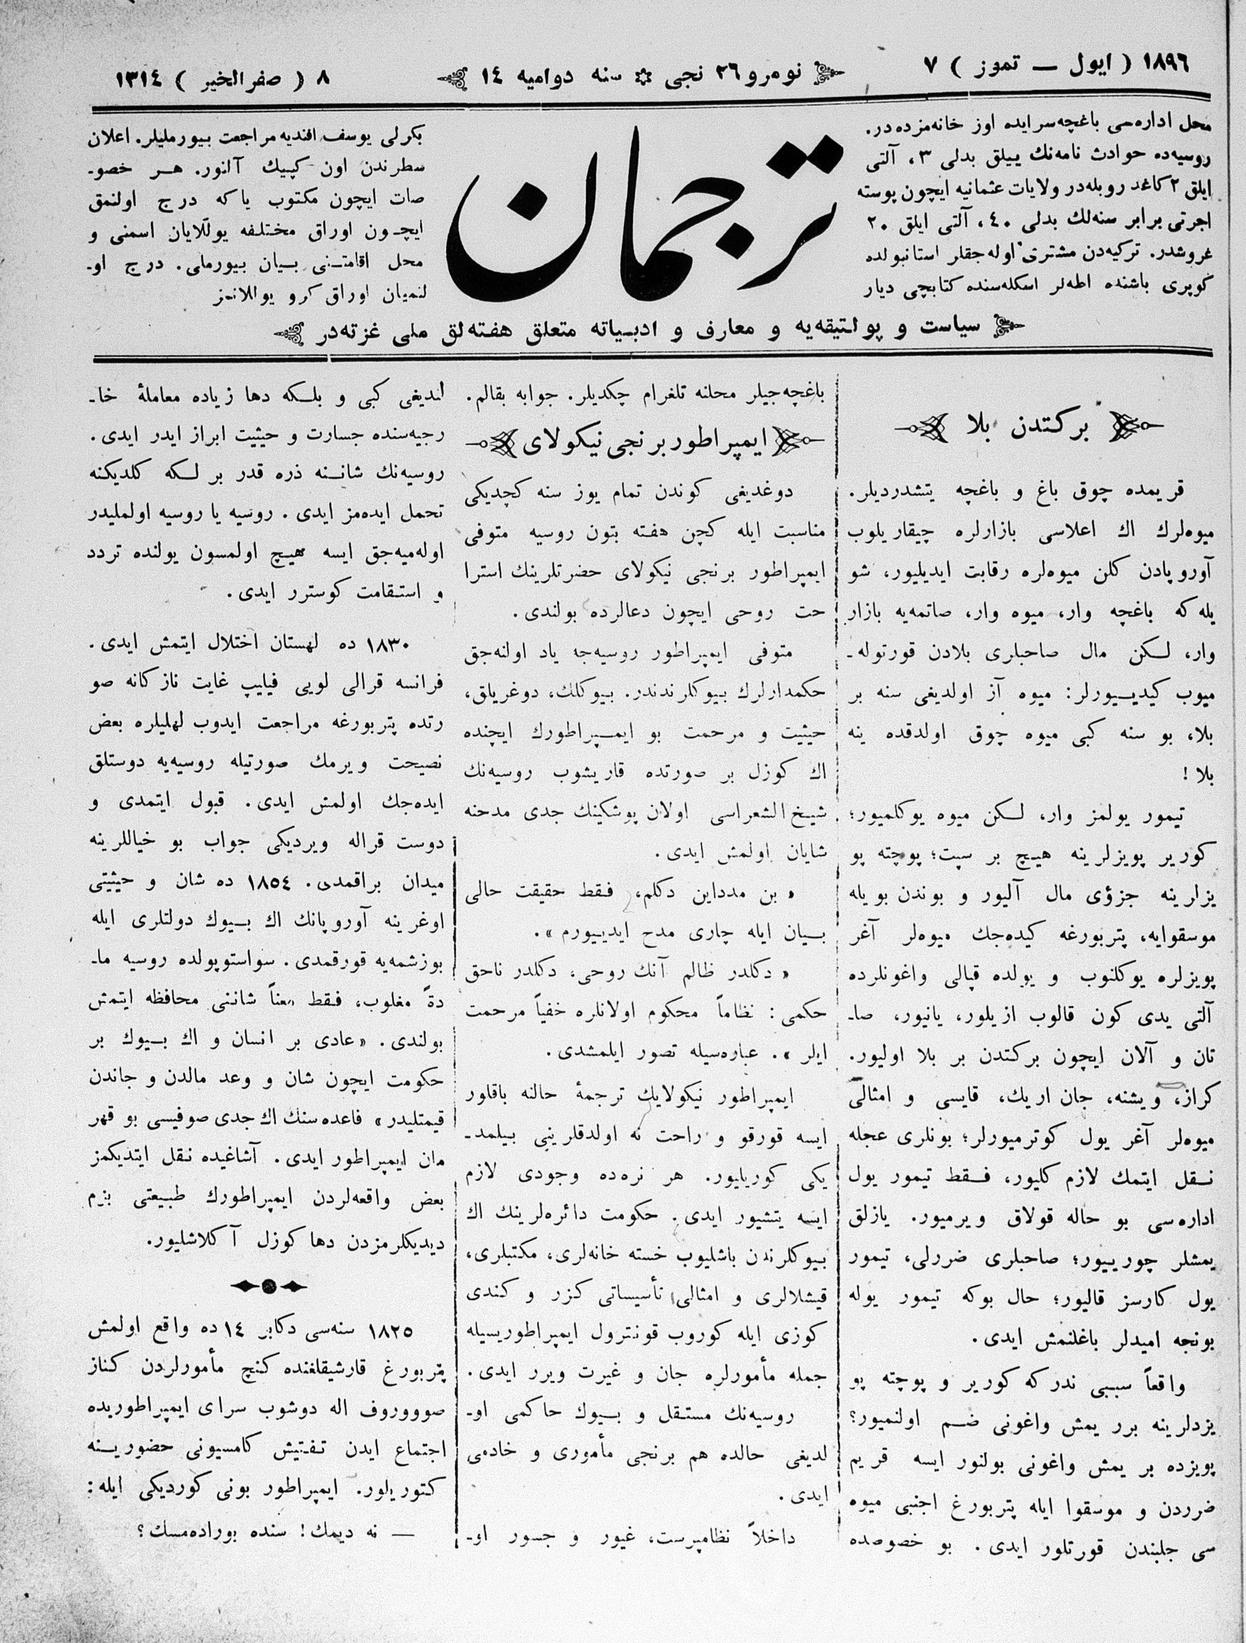 ١٨٩٦ ( ايول — تموز ) ٧
نومرو ٢٦ نجى ✲ سنه دواميه ١٤
٨ ( صفر الخير ) ١٣١٤
محل اداره‌سى باغچه‌سرايده اوز خانه‌مزده‌در.
روسيه‌ده حوادث نامه‌نك ييللق بدلى ٣، آلتى
ايلق ٢ كاغد روبله‌در ولايات عثمانيه ايچون پوسته
اجرتى برابر سنه‌لك بدلى ٤٠، آلتى ايلق ٢٠
غروشدر. تركيه‌دن مشترى اوله‌جقلر استانبولده
كوپرى باشنده اطه‌لر اسكله‌سنده كتابچى ديار
ترجمان
بكرلى يوسف افنديه مراجعت بيورمليلر. اعلان
سطرندن اون كپيك آلنور. هر خصو-
صات ايچون مكتوب ياكه درج اولنمق
ايچون اوراق مختلفه يوللايان اسمنى و
محل اقامتنى بيان بيورملى. درج او-
لنميان اوراق كرو يوللانمز
سياست و پولتيقه‌يه و معارف و ادبياته متعلق هفته‌لق ملى غزته‌در
بركتدن بلا
قريمده چوق باغ و باغچه يتشدرديلر.
ميوه‌لرك اك اعلاسى بازارلره چيقاريلوب
آوروپادن كلن ميوه‌لره رقابت ايديليور، شو
يله‌كه باغچه وار، ميوه وار، صاتمه‌يه بازار
وار، لكن مال صاحبلرى بلادن قورتوله-
ميوب كيديييورلر: ميوه آز اولديغى سنه بر
بلا، بو سنه كبى ميوه چوق اولدقده ينه
بلا !
تيمور يولمز وار، لكن ميوه يوكلميور؛
كورير پويزلرينه هيچ بر سپت؛ پوچته پو
يزلرينه جزؤى مال آليور و بوندن بويله
موسقوايه، پتربورغه كيده‌جك ميوه‌لر آغر
پويزلره يوكلنوب و يولده قپالى واغونلرده
آلتى يدى كون قالوب ازيلور، يانيور، صا-
تان و آلان ايچون بركتدن بر بلا اوليور.
كراز، ويشنه، جان اريك، قايسى و امثالى
ميوه‌لر آغر يول كوترميورلر؛ بونلرى عجله
نقل ايتمك لازم كليور، فقط تيمور يول
اداره‌سى بو حاله قولاق ويرميور. يازلق
يمشلر چوريييور؛ صاحبلرى ضررلى، تيمور
يول كارسز قاليور؛ حال بوكه تيمور يوله
بونجه اميدلر باغلنمش ايدى.
واقعاً سببى ندركه كورير و پوچته پو
يزدلرينه برر يمش واغونى ضم اولنميور؟
پويزده بر يمش واغونى بولنور ايسه قريم
ضرردن و موسقوا ايله پتربورغ اجنبى ميوه
سى جلبندن قورتلور ايدى. بو خصوصده
باغچه‌جيلر محلنه تلغرام چكديلر. جوابه بقالم.
ايمپراطور برنجى نيكولاى
دوغديغى كوندن تمام يوز سنه كچديكى
مناسبت ايله كچن هفته بتون روسيه متوفى
ايمپراطور برنجى نيكولاى حضرتلرينك استرا
حت روحى ايچون دعالرده بولندى.
متوفى ايمپراطور روسيه‌جه ياد اولنه‌جق
حكمدارلرك بيوكلرندندر. بيوكلك، دوغريلق،
حيثيت و مرحمت بو ايمپراطورك ايچنده
اك كوزل بر صورتده قاريشوب روسيه‌نك
شيخ الشعراسى اولان پوشكينك جدى مدحنه
شايان اولمش ايدى.
« بن مدداين دكلم، فقط حقيقت حالى
بيان ايله چارى مدح ايدييورم ».
« دكلدر ظالم آنك روحى، دكلدر ناحق
حكمى: نظاماً محكوم اولانلره خفياً مرحمت
ايلر ». عباره‌سيله تصور ايلمشدى.
ايمپراطور نيكولايك ترجمهٔ حالنه باقلور
ايسه قورقو و راحت نه اولدقلرينى بيلمد-
يكى كوريليور. هر نره‌ده وجودى لازم
ايسه يتشيور ايدى. حكومت دائره‌لرينك اك
بيوكلرندن باشليوب خسته خانه‌لرى، مكتبلرى،
قيشلالرى و امثالى تأسيساتى كزر و كندى
كوزى ايله كوروب قونترول ايمپراطوريسيله
جمله مأمورلره جان و غيرت ويرر ايدى.
روسيه‌نك مستقل و بيوك حاكمى او-
لديغى حالده هم برنجى مأمورى و خادمى
ايدى.
داخلاً نظامپرست، غيور و جسور او-
لنديغى كبى و بلكه دها زياده معاملهٔ خا-
رجيه‌سنده جسارت و حيثيت ابراز ايدر ايدى.
روسيه‌نك شاننه ذره قدر بر لكه كلديكنه
تحمل ايده‌مز ايدى. روسيه يا روسيه اولمليدر
اوله‌ميه‌جق ايسه هيچ اولمسون يولنده تردد
و استقامت كوسترر ايدى.
١٨٣٠ ده لهستان اختلال ايتمش ايدى.
فرانسه قرالى لويى فيليپ غايت نازكانه صو
رتده پتربورغه مراجعت ايدوب لهليلره بعض
نصيحت ويرمك صورتيله روسيه‌يه دوستلق
ايده‌جك اولمش ايدى. قبول ايتمدى و
دوست قراله ويرديكى جواب بو خياللرينه
ميدان براقمدى. ١٨٥٤ ده شان و حيثيتى
اوغرينه آوروپانك اك بيوك دولتلرى ايله
بوزشمه‌يه قورقمدى. سواستوپولده روسيه ما-
دةً مغلوب، فقط معناً شاننى محافظه ايتمش
بولندى. «عادى بر انسان و اك بيوك بر
حكومت ايچون شان و وعد مالدن و جاندن
قيمتليدر» قاعده‌سنك اك جدى صوفيسى بو قهر
مان ايمپراطور ايدى. آشاغيده نقل ايتديكمز
بعض واقعه‌لردن ايمپراطورك طبيعتى بزم
ديديكلرمزدن دها كوزل آكلاشليور.
١٨٢٥ سنه‌سى دكابر ١٤ ده واقع اولمش
پتربورغ قارشيقلغنده كنچ مأمورلردن كناز
صوووروف اله دوشوب سراى ايمپراطوريده
اجتماع ايدن تفتيش كامسيونى حضورينه
كتوريلور. ايمپراطور بونى كورديكى ايله:
— نه ديمك! سنده بوراده‌مسك؟